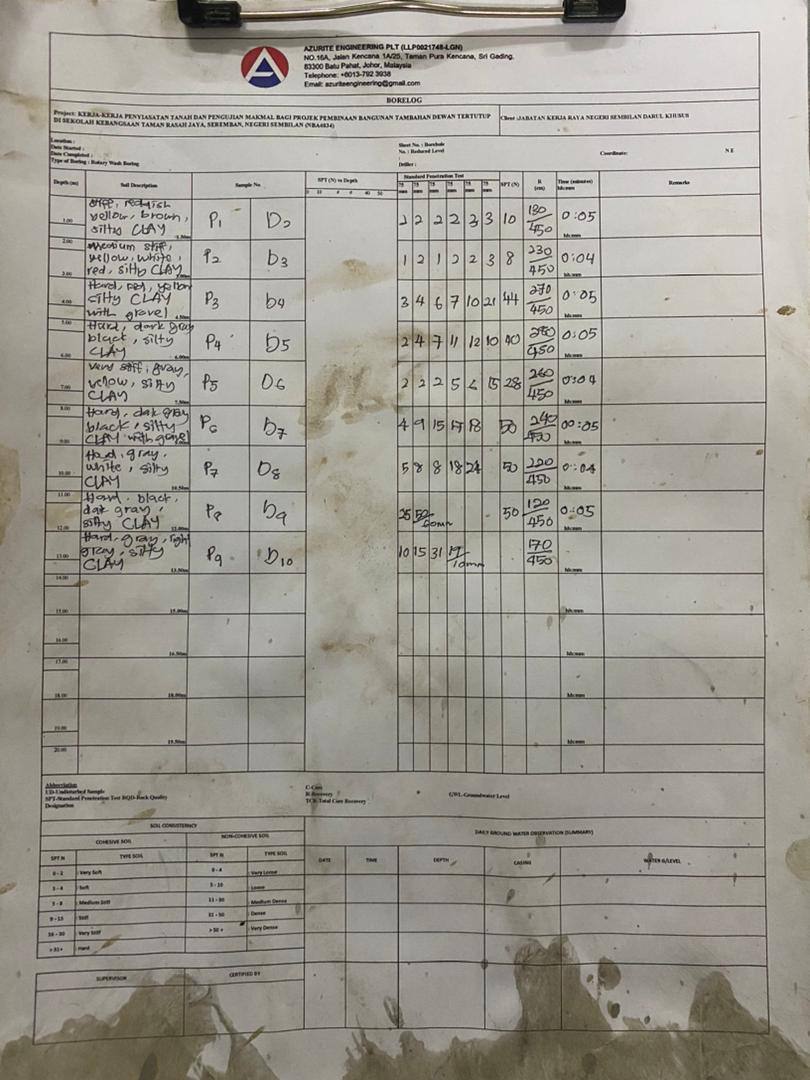 AZURITE ENGINEERING PLT (LLP0021748-LGN)
NO.16A, Jalan Kencana 1A/25, Taman Pura Kencana, Sri Gading,
83300 Batu Pahat, Johor, Malaysia
Telephone: +6013-792 3938
Email: azuriteengineering@gmail.com
BORELOG
Project: KERJA-KERJA PENYIASATAN TANAH DAN PENGUJIAN MAKMAL BAGI PROJEK PEMBINAAN BANGUNAN TAMBAHAN DEWAN TERTUTUP
DI SEKOLAH KEBANGSAAN TAMAN RASAH JAYA, SEREMBAN, NEGERI SEMBILAN (NBA4034)
Client :JABATAN KERJA RAYA NEGERI SEMBILAN DARUL KHUSUS
Location :
Date Started :
Date Completed :
Type of Boring : Rotary Wash Boring
Sheet No. : Borehole
No. : Reduced Level
:
Driller :
Coordinate: N E
Depth (m) Soil Description Sample No SPT (N) vs Depth Standard Penetration Test SPT (N) R (cm) Time (minutes) hh:mm Remarks
75 mm 75 mm 75 mm 75 mm 75 mm 75 mm
stiff, reddish
1.00 yellow, brown, P1 D2 2 2 2 2 3 3 10 130/450 0:05
silty CLAY 1.50m hh:mm
2.00 Medium stiff,
yellow, white, P2 D3 1 2 1 2 2 3 8 230/450 0:04
3.00 red, silty CLAY 3.00m hh:mm
Hard, red, yellow
4.00 silty CLAY P3 D4 3 4 6 7 10 21 44 270/450 0:05
with gravel 4.50m hh:mm
5.00 Hard, dark gray
black, silty P4 D5 2 4 7 11 12 10 40 280/450 0:05
6.00 CLAY 6.00m hh:mm
very stiff, gray,
7.00 yellow, silty P5 D6 2 2 2 5 6 15 28 260/450 0:04
CLAY 7.50m hh:mm
8.00 Hard, dak gray
black, silty P6 D7 4 9 15 17 18 50 240/450 00:05
9.00 CLAY with gravel hh:mm
Hard, gray,
10.00 white, silty P7 D8 5 8 8 18 24 50 220/450 0:04
CLAY 10.50m hh:mm
11.00 Hard, black,
dak gray, P8 D9 25 52/60mm 50 120/450 0:05
12.00 silty CLAY 12.00m hh:mm
Hard, gray, light
13.00 gray, silty P9 D10 10 15 31 19/10mm 170/450
CLAY 13.50m hh:mm
14.00
15.00 15.00m hh:mm
16.00
16.50m hh:mm
17.00
18.00 18.00m hh:mm
19.00
19.50m hh:mm
20.00
Abbreviation
UD-Undisturbed Sample
SPT-Standard Penetration Test RQD-Rock Quality
Designation
C-Core
R-Recovery
TCR-Total Core Recovery
GWL-Groundwater Level
SOIL CONSISTENCY
COHESIVE SOIL NON-COHESIVE SOIL
SPT N TYPE SOIL SPT N TYPE SOIL
0 - 2 : Very Soft 0 - 4 : Very Loose
3 - 4 : Soft 5 - 10 : Loose
5 - 8 : Medium Stiff 11 - 30 : Medium Dense
9 - 15 : Stiff 31 - 50 : Dense
16 - 30 : Very Stiff > 50 + : Very Dense
> 31+ : Hard
DAILY GROUND WATER OBSERVATION (SUMMARY)
DATE TIME DEPTH CASING WATER G/LEVEL
SUPERVISOR CERTIFIED BY